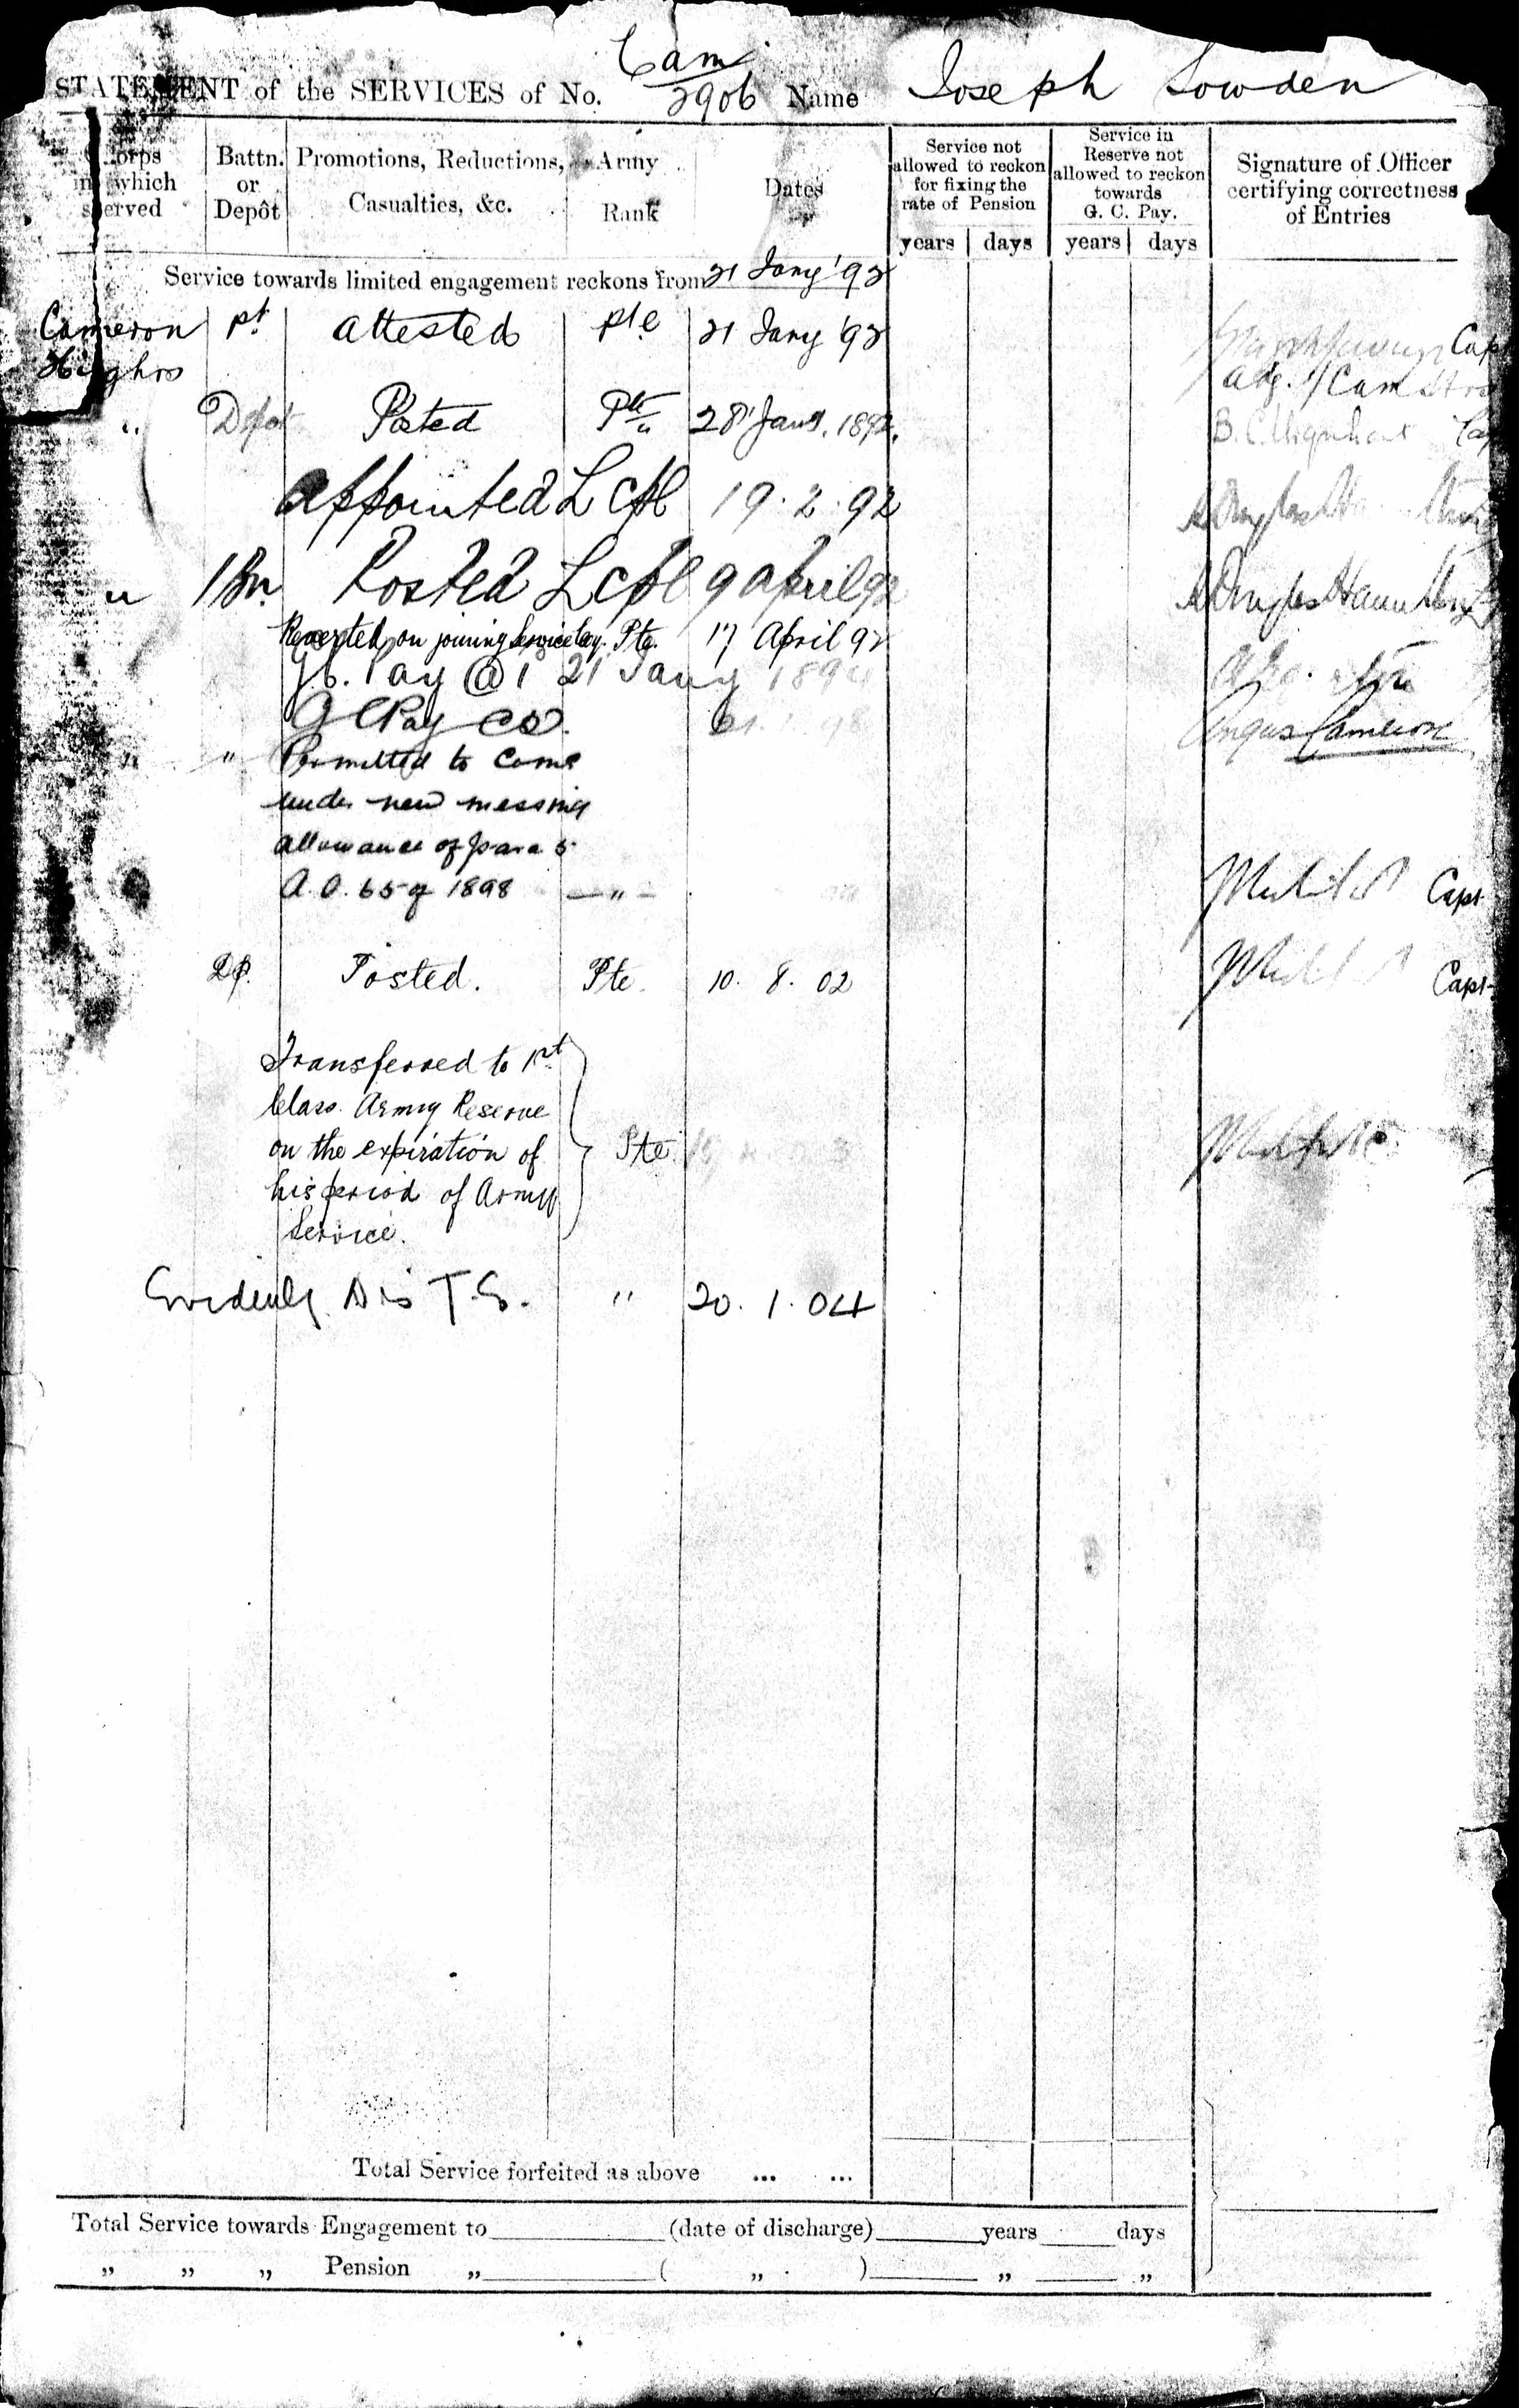 Cam
STATEMENT of the SERVICES of No. 2906 Name Joseph Lowden
Corps in which served
Battn. or Depôt
Promotions, Reductions, Casualties, &c.
Army Rank
Dates
Service not allowed to reckon for fixing the rate of Pension
years days
Service in Reserve not allowed to reckon towards G. C. Pay.
years days
Signature of Officer certifying correctness of Entries
Service towards limited engagement reckons from 21 Jany '92
Cameron Pt attested Pte 21 Jany '92 Capt
Highrs Adj.
" Depot Posted Pte 28 Jany. 1892. B. C. Urquhart Cap
appointed L Cpl 19.2.92
" 1 Bn. Posted L Cpl 9 April 92
Reverted on joining Service Coy. Pte. 17 April 92
G.C. Pay @ 1 21 Jany 1894
G C Pay 98 Angus Cameron
" " Permitted to come
under new messing
allowance of para 5
A. O. 65 of 1898 — " — Capt
Dp. Posted. Pte. 10. 8. 02 Capt
Transferred to 1st
Class Army Reserve
on the expiration of Pte
his period of Army
Service.
Evidently Dis T.E. " 20. 1. 04
Total Service forfeited as above ... ...
Total Service towards Engagement to (date of discharge) years days
" " " Pension " ( " ) " "